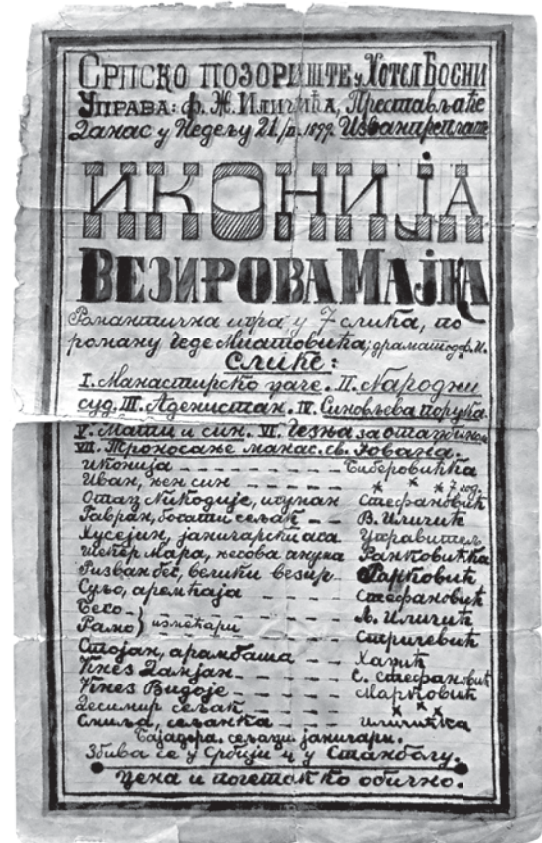 Српско позориште у Хотел Босни
Управа: Ф. Ж. Иличића, Преставља́ће
Данас у Недељу 21./II. 1899. Изванпретплате
ИКОНИЈА
ВЕЗИРОВА МАЈКА
Романтична игра у 7 слика, по
роману Чеде Мијатовића; драматиз. Ф. И.
Слике:
I. Манастирско ђаче. II. Народни
суд. III. Аџенистан. IV. Синовљева порука.
V. Мати и син. VI. Чезња за отаџбином
VII. Троносање манас. св. Јована.
Иконија – – – – – Биберовићка
Иван, њен син – – – * * * 7 год.
Отац Никодије, игуман Стефановић
Гавран, богати сељак – – В. Иличић
Хусејин, јаничарски ага Управитељ
Шећер Мара, његова анука Ранковићка
Ризван бег, велики везир – Ранковић
Суљо, аремћаја – – – Стефановић
Бесо – } измећари – – – Л. Иличић
Рамо } – – – Стричевић
Стојан, арамбаша – – Хаџић
Кнез Дамјан – – – – С. Стефановић
Кнез Видоје – – – – Марковић
Десимир сељак – – – * * *
Смиља, сељанка – – – Иличићка
Бајадера, сељаци, јаничари.
Збива се у Србији и у Стамболу.
Цена и почетак ко обично.